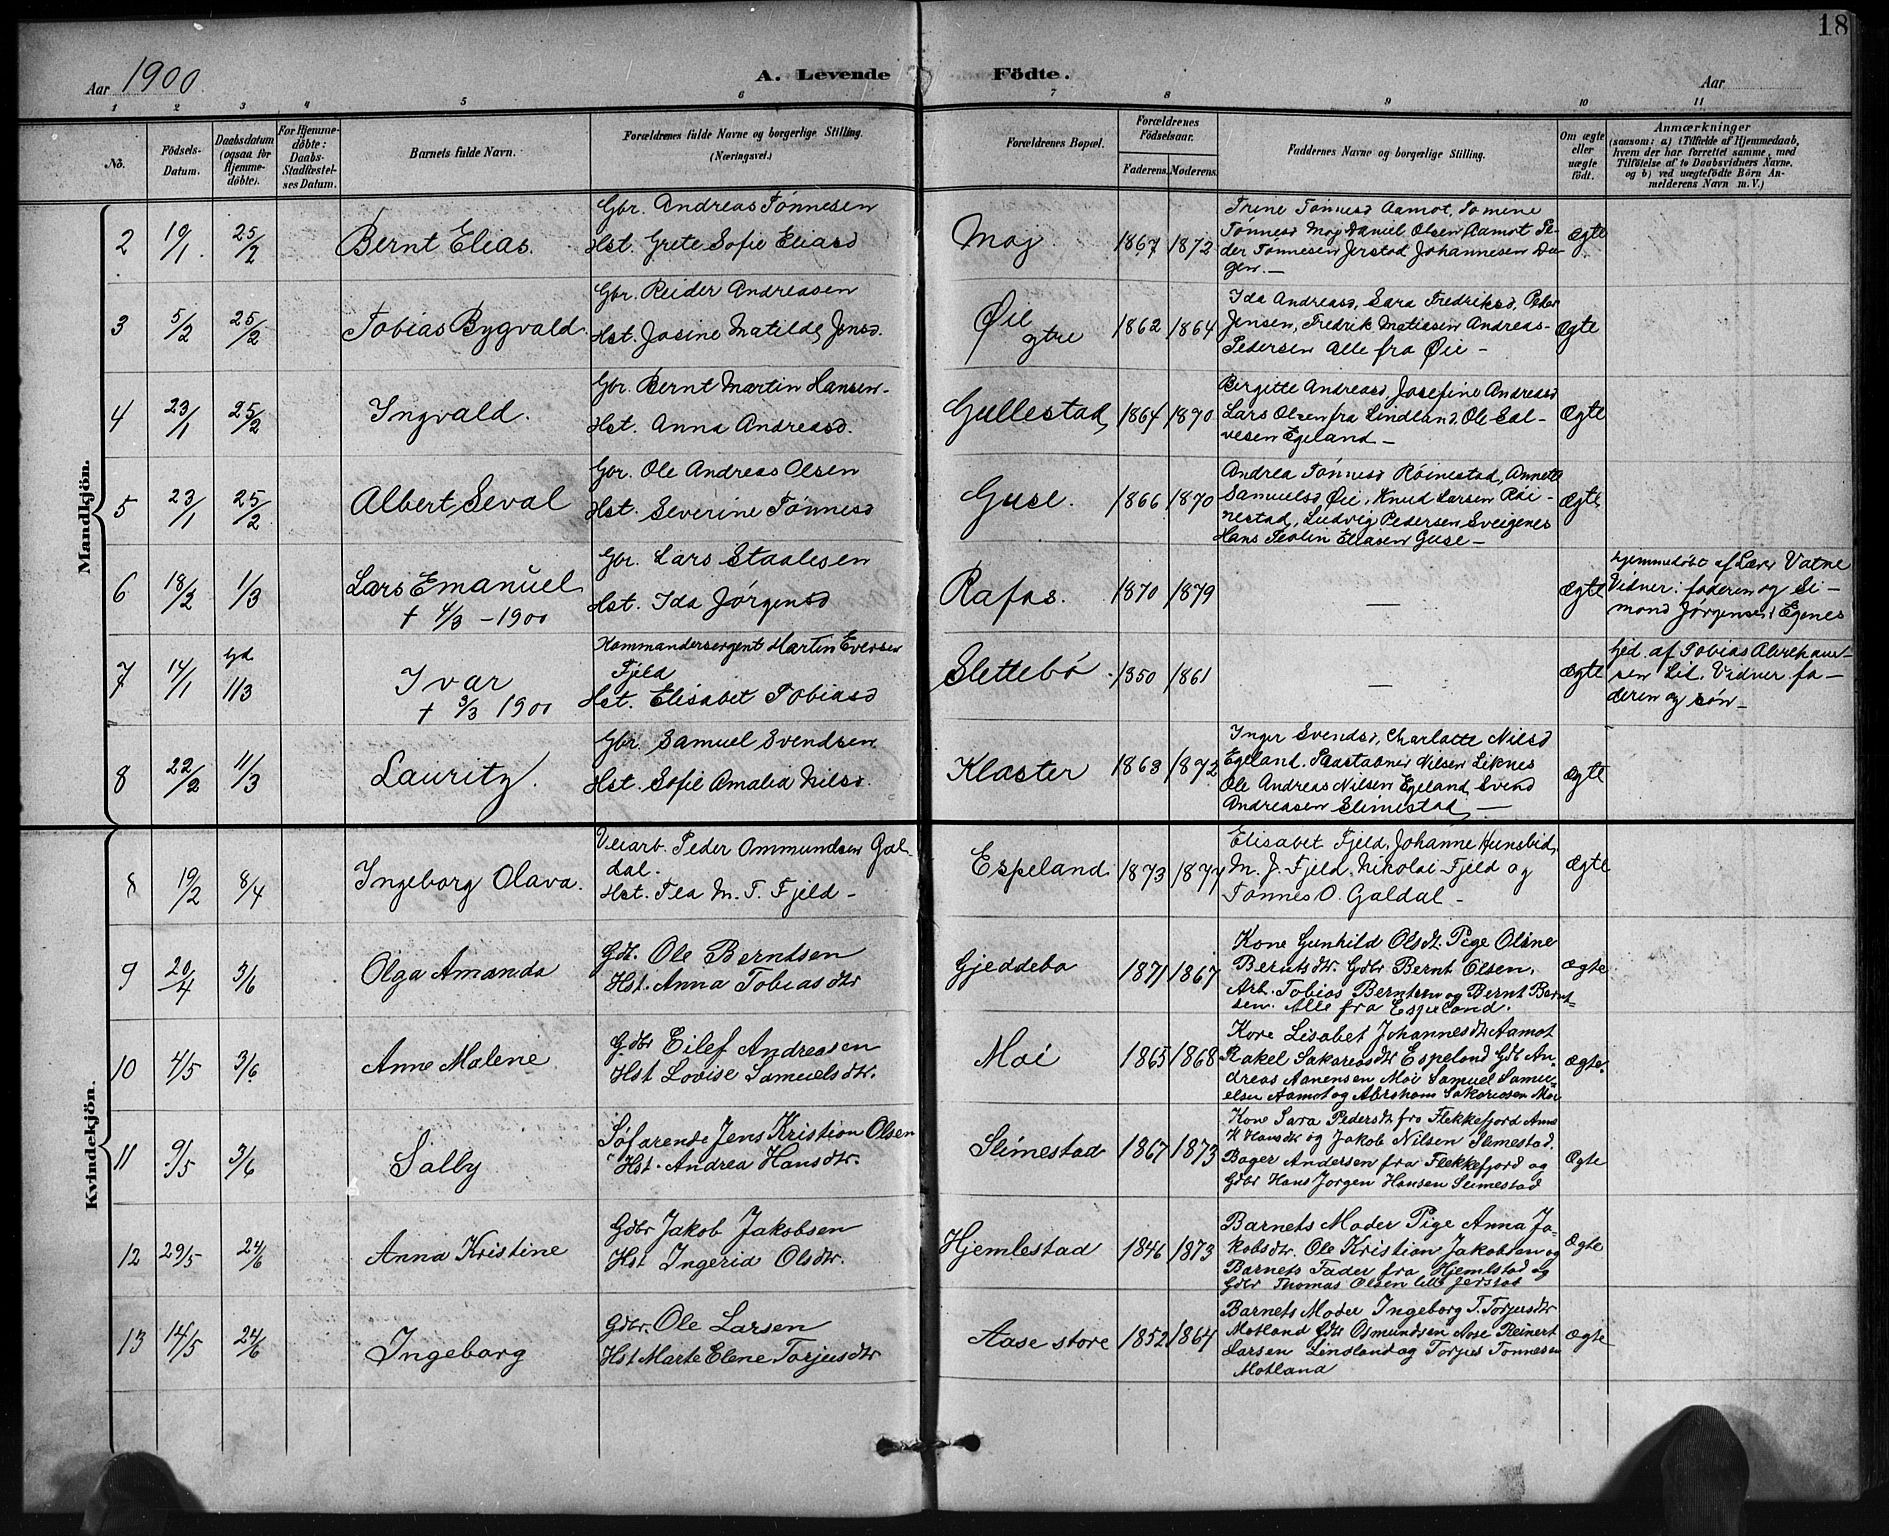 18
Aar 1900
A. Levende Födte.
Aar
1 2 3 4 5 6 7 8 9 10 11
No.
Födsels-Datum.
Daabsdatum (ogsaa for Hjemmedöbte).
For Hjemmedöbte: Daabs-Stadfæstelses Datum.
Barnets fulde Navn.
Forældrenes fulde Navne og borgerlige Stilling. (Næringsvei.)
Forældrenes Bopæl.
Forældrenes Födselsaar.
Faderens. Moderens.
Faddernes Navne og borgerlige Stilling.
Om ægte eller uægte födt.
Anmærkninger
(saasom: a) i Tilfælde af Hjemmedaab, hvem der har forrettet samme, med Tilföielse af to Daabsvidners Navne, og b) ved uægtefödte Börn Anmelderens Navn m. V.)
Mandkjön.
2 19/1 25/2 Bernt Elias.
Gbr. Andreas Tønnesen
Hst. Grete Sofie Eliasd
Moj 1867 1872
Trine Tønnesd Aamot, Tomine
Tønnesd Moj Daniel Olsen Aamot Pe-
der Tønnesen Jerstad Johannesen Du-
gen. —
Ægte
3 5/2 25/2 Tobias Bygvald.
Gbr. Reider Andreasen
Hst. Josine Matilde Jensd.
Øie ytre 1862 1864
Ida Andreasd, Sara Fredriksd, Peder
Jensen, Fredrik Matiesen Andreas-
Pedersen Alle fra Øie —
Ægte
4 23/1 25/2 Ingvald.
Gbr. Bernt Martin Hansen.
Hst. Anna Andreasd.
Gullestad, 1864 1870
Birgitte Andreasd, Josefine Andreasd
Lars Olsen fra Lindland. Ole Sal-
vesen Egeland —
Ægte
5 23/1 25/2 Albert Seval
Gbr. Ole Andreas Olsen
Hst. Severine Tønnesd
Guse. 1866 1870
Andrea Tønnesd Røinestad, Annette
Samuelsd Øie, Knud Larsen Røi-
nestad, Ludvig Pedersen Sveigenes
Hans Teolin Eliasen Guse —
Ægte
6 18/2 1/3 Lars Emanuel
† 4/3 - 1900
Gbr. Lars Staalesen
Hst. Ida Jørgensd
Rafos. 1870 1879
—
Ægte
hjemmedøbt af Lærer Vatne
Vidner: faderen og Si-
mond Jørgensen Egenes
7 14/1 1/3 Ivar
† 3/3 1900
Kommandersergent Martin Eversen
Fjeld
Hst. Elisabet Tobiasd
Slettebø. 1850 1861
—
Ægte
hjd. af Tobias Abraham-
sen Lil. Vidner fa-
deren og søn —
8 22/2 11/3 Lauritz.
Gbr. Samuel Svendsen
Hst. Sofie Amalia Nilsd.
Kloster 1863 1872
Inger Svendsd, Charlotte Nilsd
Egeland. Nilsen Liknes
Ole Andreas Nilsen Egeland, Svend
Andreasen Slimestad —
Ægte
Kvindekjön.
8 19/2 8/4 Ingeborg Olava.
Veiarb. Peder Ommundsen Gal-
dal.
Hst. Tea M. T. Fjeld -
Espeland. 1873 1877
Elisabet Fjeld, Johanne Hunsbid,
M. J. Fjeld, Nikolai Fjeld og
Tønnes O. Galdal -
Ægte
9 20/4 3/6 Olga Amanda
Gdb. Ole Berntsen
Hst. Anna Tobiasdtr
Gjeddebo 1871 1867
Kone Gunhild Olsdt. Pige Olsine
Berntsdtr. Gdbr Bernt Olsen.
Arb. Tobias Berntsen og Bernt Bernt-
sen. Alle fra Espeland.
Ægte
10 4/5 3/6 Anne Malene
Gdbr Eilef Andreasen
Hst Lovise Samuelsdtr.
Moi 1865 1868
Kone Lisabet Johannesdtr Aamot
Rakel Sakariasdtr Espeland Gdb An-
dreas Aanensen Moi Samuel Samu-
elsen Aamot og Abraham Sakariasen Moi
Ægte.
11 9/5 3/6 Solby
Søfarende Jens Kristian Olsen
Hst. Andrea Hansdtr.
Slimestad 1867 1873
Kone Sara Pedersdt. fra Flekkefjord Anne
K Hansdtr og Jakob Nilsen Slimestad.
Bager Andersen fra Flekkefjord og
Gdbr Hans Jørgen Hansen Slimestad
Ægte
12 29/5 24/6 Anna Kristine
Gdbr Jakob Jakobsen
Hst Ingerid Olsdtr.
Hjemlestad 1846 1873
Barnets Moder Pige Anna Ja-
kobsdtr. Ole Kristian Jakobsen og
Barnets Fader fra Hjemlstad og
Gdbr Thomas Olsen lille Jerstad
Ægte
13 14/5 24/6 Ingeborg
Gdbr. Ole Larsen
Hst Marte Elene Torjusdtr
Aase store 1852 1864
Barnets Moder Ingeborg T. Torjusdtr
Motland Gdbr Osmundsen Aase Reinert
Larsen Lindland og Torjus Tønnesen
Motland
Ægte